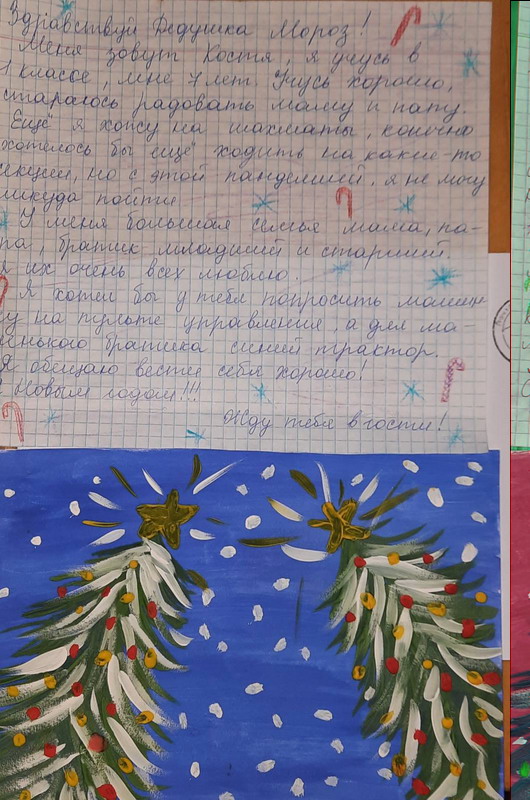 Здравствуй Дедушка Мороз!
Меня зовут Костя, я учусь в
1 классе, мне 7 лет. Учусь хорошо,
стараюсь радовать маму и папу.
Ещё я хожу на шахматы, конечно
хотелось бы ещё ходить на какие-то
секции, но с этой пандемией, я не могу
никуда пойти.
У меня большая семья мама, па-
па, братик младший и старший.
Я их очень всех люблю.
Я хотел бы у тебя попросить машин
ку на пульте управления, а для ма-
ленького братика синий трактор.
Я обещаю вести себя хорошо!
С Новым годом!!!
Жду тебя в гости!